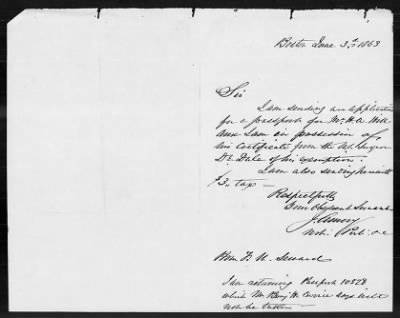 Boston June 3d, 1863
Sir
I am sending an application
for a passport for Mr. H. A. Hill
and I am in possession of
his certificate from the
Dr. Dale of his exemption.
I am also sending herewith
$3. tax —
Respectfully
Your Obedient Servant
J. Amory
Wm. H. Seward
I am returning Passport 10828
which Mr. Benj. H. Currier says will
not be taken